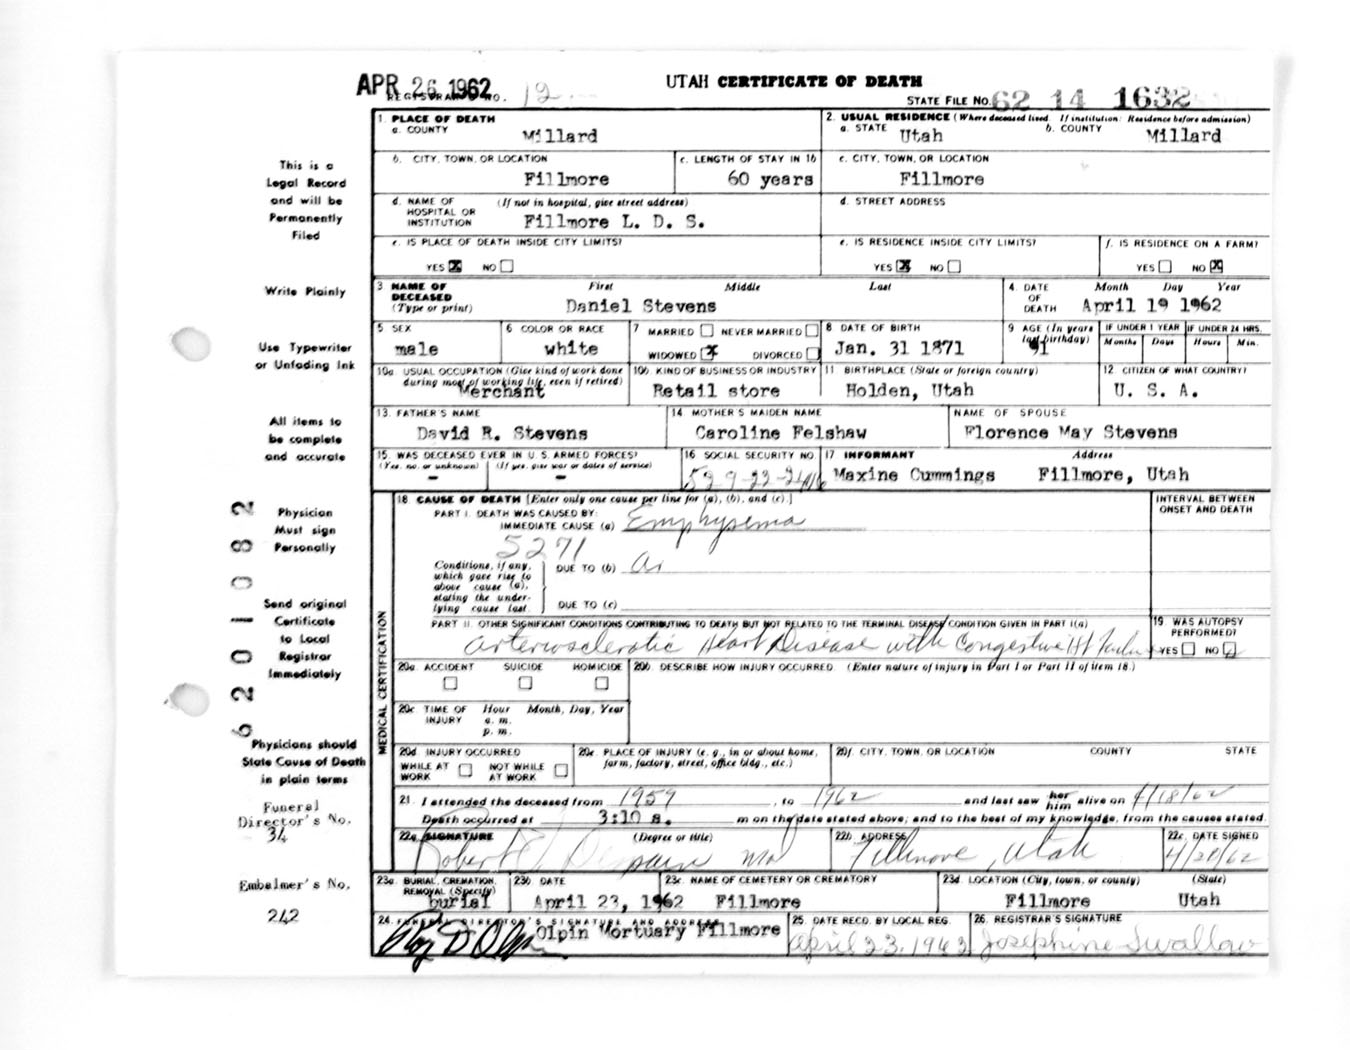 APR 26 1962
UTAH CERTIFICATE OF DEATH
REGISTRAR'S NO. 12
STATE FILE NO. 62 14 1632
1. PLACE OF DEATH
a. COUNTY Millard
2. USUAL RESIDENCE (Where deceased lived. If institution: Residence before admission)
a. STATE Utah b. COUNTY Millard
b. CITY, TOWN, OR LOCATION Fillmore
c. LENGTH OF STAY IN 1b 60 years
c. CITY, TOWN, OR LOCATION Fillmore
d. NAME OF HOSPITAL OR INSTITUTION (If not in hospital, give street address)
Fillmore L. D. S.
d. STREET ADDRESS
e. IS PLACE OF DEATH INSIDE CITY LIMITS?
YES X NO
e. IS RESIDENCE INSIDE CITY LIMITS?
YES X NO
f. IS RESIDENCE ON A FARM?
YES NO X
3 NAME OF DECEASED (Type or print) First Middle Last
Daniel Stevens
4. DATE OF DEATH Month Day Year
April 19 1962
5 SEX
male
6 COLOR OR RACE
white
7 MARRIED NEVER MARRIED
WIDOWED X DIVORCED
8 DATE OF BIRTH
Jan. 31 1871
9 AGE (In years last birthday)
91
IF UNDER 1 YEAR IF UNDER 24 HRS.
Months Days Hours Min.
10a. USUAL OCCUPATION (Give kind of work done during most of working life, even if retired)
Merchant
10b. KIND OF BUSINESS OR INDUSTRY
Retail store
11 BIRTHPLACE (State or foreign country)
Holden, Utah
12 CITIZEN OF WHAT COUNTRY?
U. S. A.
13. FATHER'S NAME
David R. Stevens
14 MOTHER'S MAIDEN NAME
Caroline Felshaw
NAME OF SPOUSE
Florence May Stevens
15. WAS DECEASED EVER IN U. S. ARMED FORCES?
(Yes, no, or unknown) (If yes, give war or dates of service)
- -
16 SOCIAL SECURITY NO.
17 INFORMANT Address
Maxine Cummings Fillmore, Utah
18 CAUSE OF DEATH [Enter only one cause per line for (a), (b), and (c).]
INTERVAL BETWEEN ONSET AND DEATH
PART I. DEATH WAS CAUSED BY:
IMMEDIATE CAUSE (a) Emphysema
5271
Conditions, if any, which gave rise to above cause (a), stating the underlying cause last.
DUE TO (b) Ar
DUE TO (c)
PART II. OTHER SIGNIFICANT CONDITIONS CONTRIBUTING TO DEATH BUT NOT RELATED TO THE TERMINAL DISEASE CONDITION GIVEN IN PART I(a)
arteriosclerotic Heart Disease with Congestive Ht Failure
19 WAS AUTOPSY PERFORMED?
YES NO
20a. ACCIDENT SUICIDE HOMICIDE
20b. DESCRIBE HOW INJURY OCCURRED. (Enter nature of injury in Part I or Part II of item 18.)
20c. TIME OF INJURY Hour a. m. p. m. Month, Day, Year
20d INJURY OCCURRED
WHILE AT WORK NOT WHILE AT WORK
20e. PLACE OF INJURY (e. g., in or about home, farm, factory, street, office bldg., etc.)
20f CITY, TOWN, OR LOCATION COUNTY STATE
21. I attended the deceased from 1959, to 1962 and last saw her him alive on 4/18/62
Death occurred at 3:10 a. m on the date stated above; and to the best of my knowledge, from the causes stated.
22a. SIGNATURE (Degree or title)
Robert MD
22b ADDRESS
Fillmore, Utah
22c. DATE SIGNED
4/20/62
23a. BURIAL, CREMATION, REMOVAL (Specify)
burial
23b DATE
April 23, 1962
23c. NAME OF CEMETERY OR CREMATORY
Fillmore
23d LOCATION (City, town, or county) (State)
Fillmore Utah
24. FUNERAL DIRECTOR'S SIGNATURE AND ADDRESS
Olpin Mortuary Fillmore
25. DATE RECD. BY LOCAL REG.
April 23, 1962
26. REGISTRAR'S SIGNATURE
Josephine Swallow
MEDICAL CERTIFICATION
This is a
Legal Record
and will be
Permanently
Filed
Write Plainly
Use Typewriter
or Unfading Ink
All items to
be complete
and accurate
Physician
Must sign
Personally
Send original
Certificate
to Local
Registrar
Immediately
Physicians should
State Cause of Death
in plain terms
Funeral
Director's No.
34
Embalmer's No.
242
62 01 082